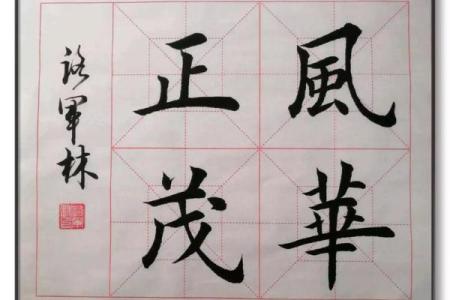 風華
正茂
路軍林